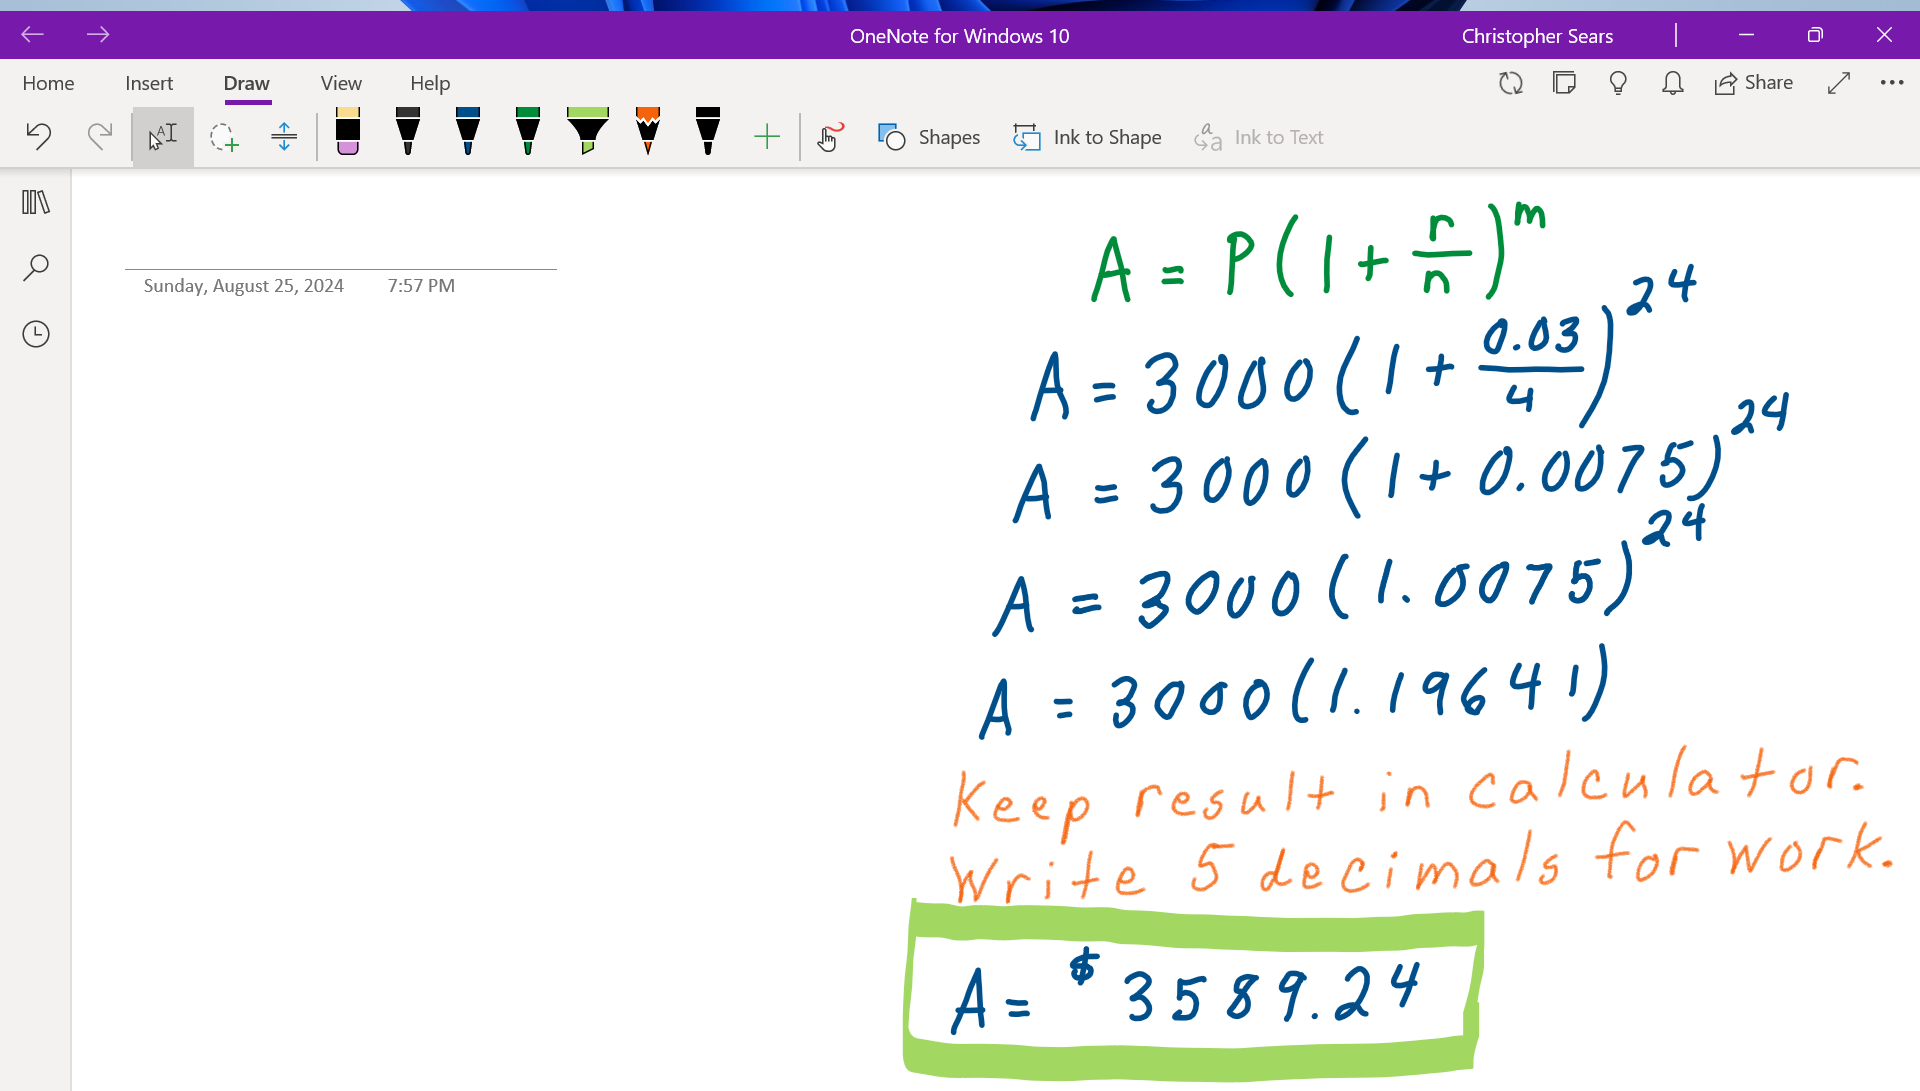 OneNote for Windows 10
Christopher Sears
Home Insert Draw View Help
Share
Shapes Ink to Shape Ink to Text
Sunday, August 25, 2024 7:57 PM
A = P(1 + r/n)^m
A = 3000(1 + 0.03/4)^24
A = 3000(1 + 0.0075)^24
A = 3000(1.0075)^24
A = 3000(1.19641)
Keep result in calculator.
Write 5 decimals for work.
A = $3589.24